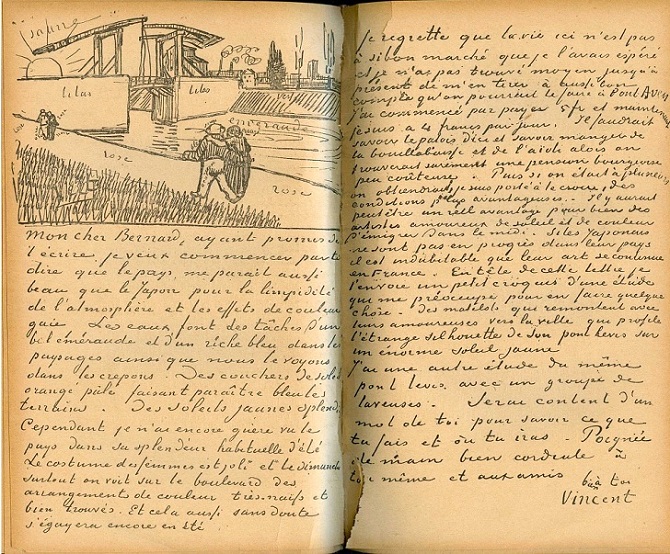 jaune
lilas
lilas
vert
emeraude
rose
rose
mon cher Bernard, ayant promis de
t'ecrire, je veux commencer par te
dire que le pays me parait aussi
beau que le Japon pour la limpidité
de l'atmosphère et les effets de couleur
gaie. Les eaux font des tâches d'un
bel éméraude et d'un riche bleu dans les
paysages ainsi que nous le voyons
dans les crepons. Des couchers de soleil
orangé pâle faisant paraître bleu les
terrains. Des soleils jaunes splend.
Cependant je n'ai encore guère vu le
pays dans sa splendeur habituelle d'été
Le costume des femmes est joli et le dimanche
surtout on voit sur le boulevard des
arrangements de couleur très naifs et
bien trouvés. Et cela aussi sans doute
s'égayera encore en été
Je regrette que la vie ici n'est pas
à si bon marché que je l'avais espéré
et je n'ai pas trouvé moyen jusqu'à
présent de m'en tirer à aussi bon
compte qu'on pourrait le faire à Pont Aven
J'ai commencé par payer 5 fr et maintenant
je suis a 4 francs par jour. Il faudrait
savoir le patois d'ici et savoir manger de
la bouillabaisse et de l'aïoli alors on
trouverait surement une pension bourgeoise
peu coûteuse. Puis si on était à plusieurs
on obtiendrait, je suis porté à le croire, des
conditions plus avantageuses. Il y aurait
peut être un réel avantage pour bien des
artistes amoureux de soleil et de couleur
d'émigrer dans le midi. Si les Japonais
ne sont pas en progrès dans leur pays
il est indubitable que leur art se continue
en France. En tête de cette lettre je
t'envoie un petit croquis d'une étude
qui me préoccupe pour en faire quelque
chose - Des matelots qui remontent avec
leurs amoureuses vers la ville qui profile
l'étrange silhouette de son pont levis sur
un énorme soleil jaune
J'ai une autre étude du même
pont levis avec un groupe de
laveuses. Serai content d'un
mot de toi pour savoir ce que
tu fais et où tu iras. Poignée
de main bien cordiale à
toi même et aux amis
b. à toi
Vincent